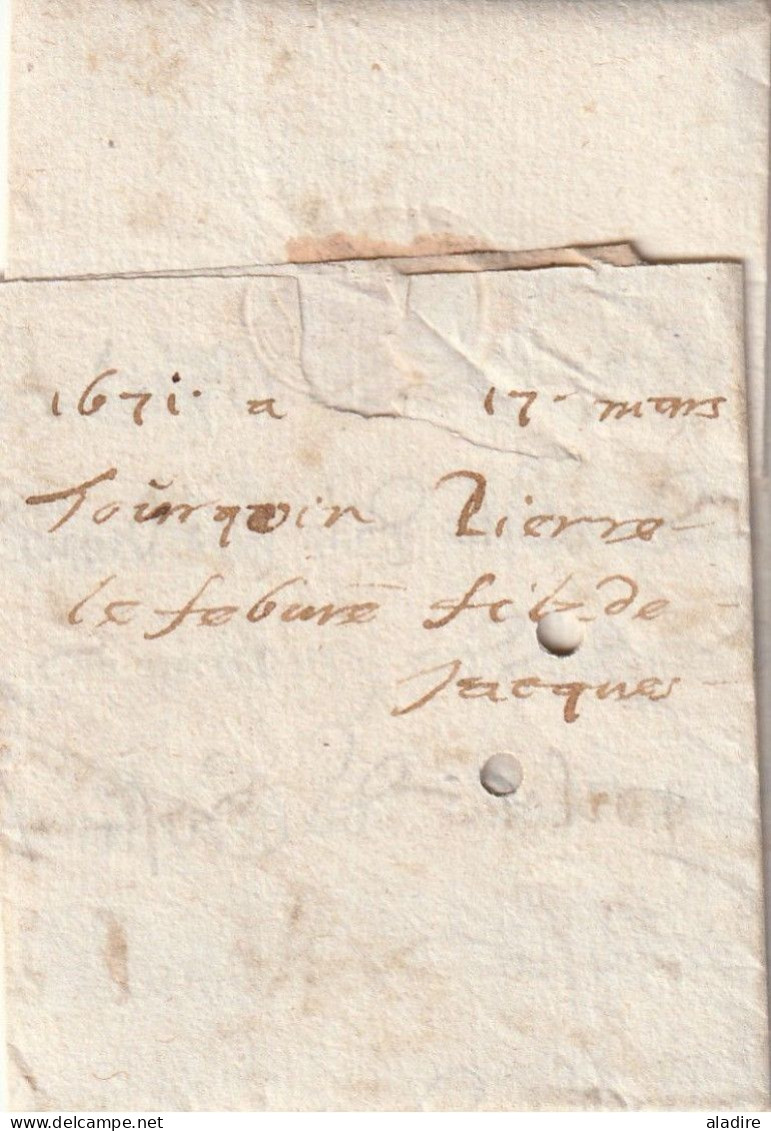 1671. a 17. mars
Tourqoin Pierre
le febure filz de
Jacques
delcampe.net
aladire